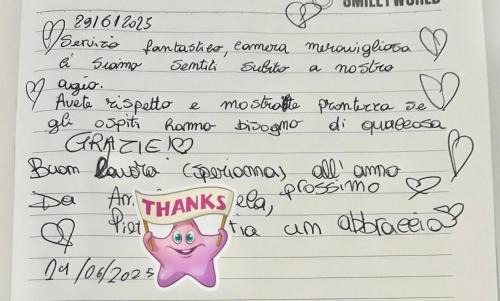 SMILEYWORLD
29/6/2025
Servizio fantastico, camera meravigliosa
ci siamo sentiti subito a nostro
agio.
Avete rispetto e mostrate prontezza se
gli ospiti hanno bisogno di qualcosa
GRAZIE!
Buon lavoro (speriamo) all'anno
Da prossimo
THANKS
un abbraccio
19/06/2025